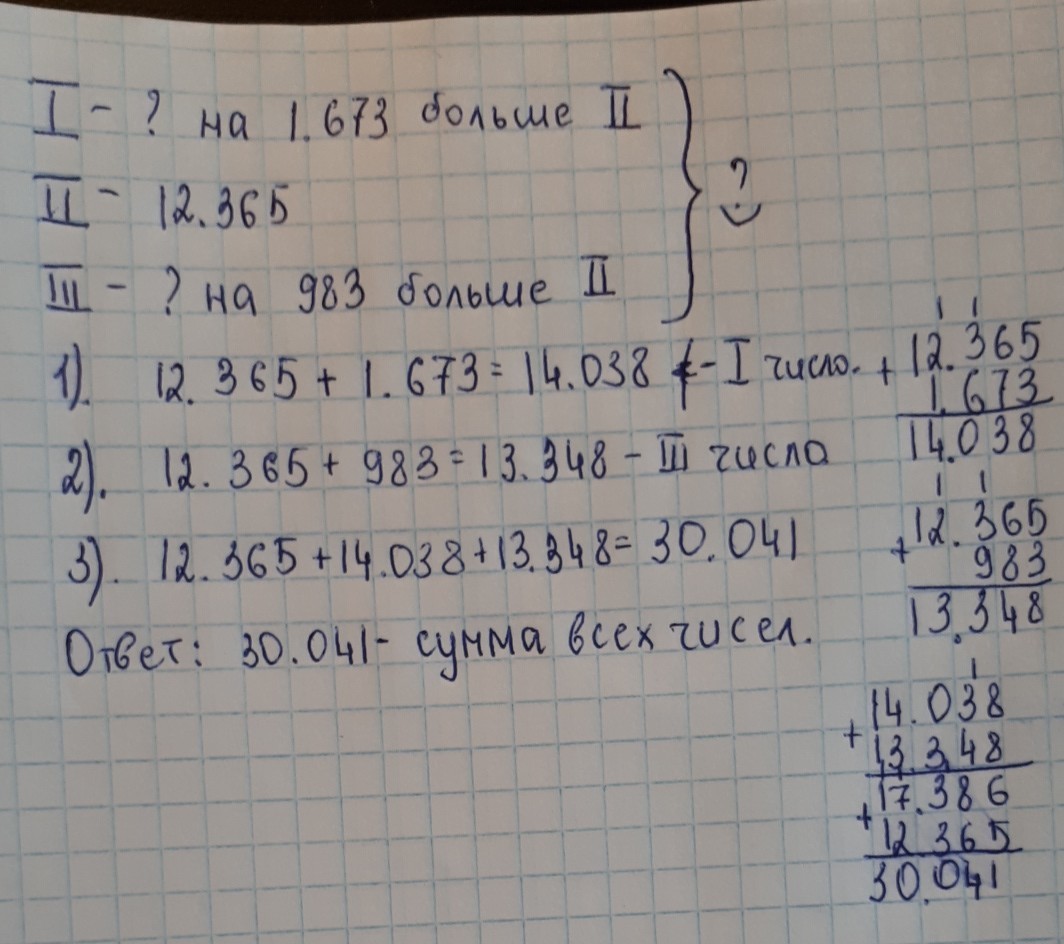 I - ? на 1.673 больше II
II - 12.365
III - ? на 983 больше II
?
1). 12.365 + 1.673 = 14.038 - I число.
2). 12.365 + 983 = 13.348 - III число
3). 12.365 + 14.038 + 13.348 = 30.041
Ответ: 30.041 - сумма всех чисел.
1 1
+ 12.365
1.673
14.038
1 1
+ 12.365
983
13.348
1
+ 14.038
13.348
17.386
+ 12 365
30.041